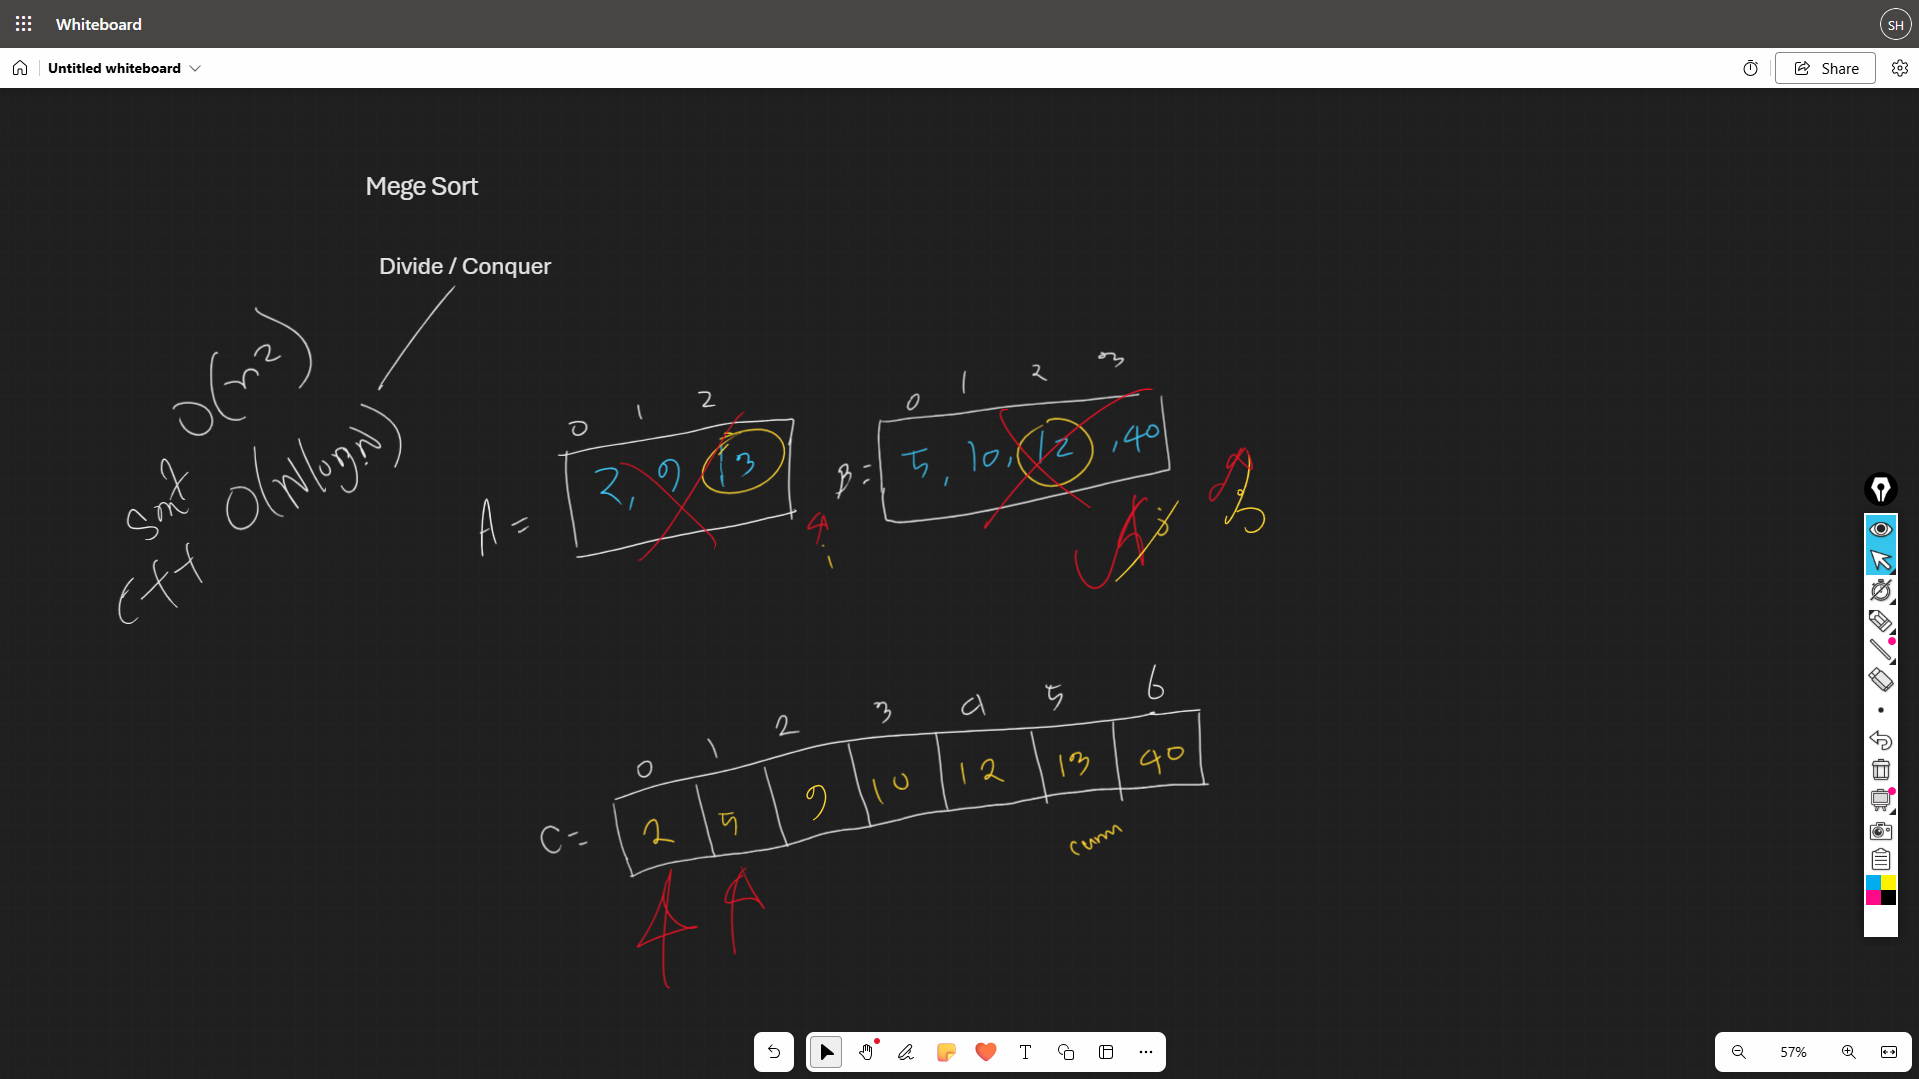 Whiteboard
SH
Untitled whiteboard
Share
Mege Sort
Divide / Conquer
O(n²)
O(NlogN)
sort
C++
0 1 2
A = 2, 9 13
i
0 1 2 3
B = 5, 10, 12, 40
j
0 1 2 3 4 5 6
C = 2 5 9 10 12 13 40
curr
57%